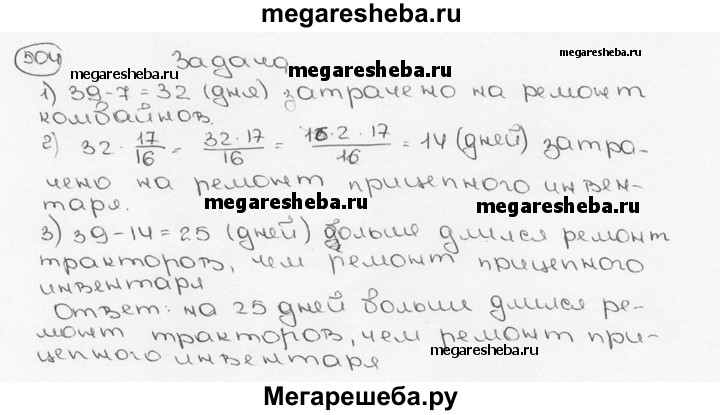 megaresheba.ru
504 Задача
megaresheba.ru
megaresheba.ru
1) 39-7=32 (дня) затрачено на ремонт
комбайнов.
2) 32 · 17/16 = 32·17/16 = 16·2·17/16 = 14 (дней) затра-
чено на ремонт прицепного инвен-
таря.
megaresheba.ru
megaresheba.ru
3) 39-14=25 (дней) больше длился ремонт
тракторов, чем ремонт прицепного
инвентаря
Ответ: на 25 дней больше длился ре-
монт тракторов, чем ремонт при-
цепного инвентаря
megaresheba.ru
Мегарешеба.ру